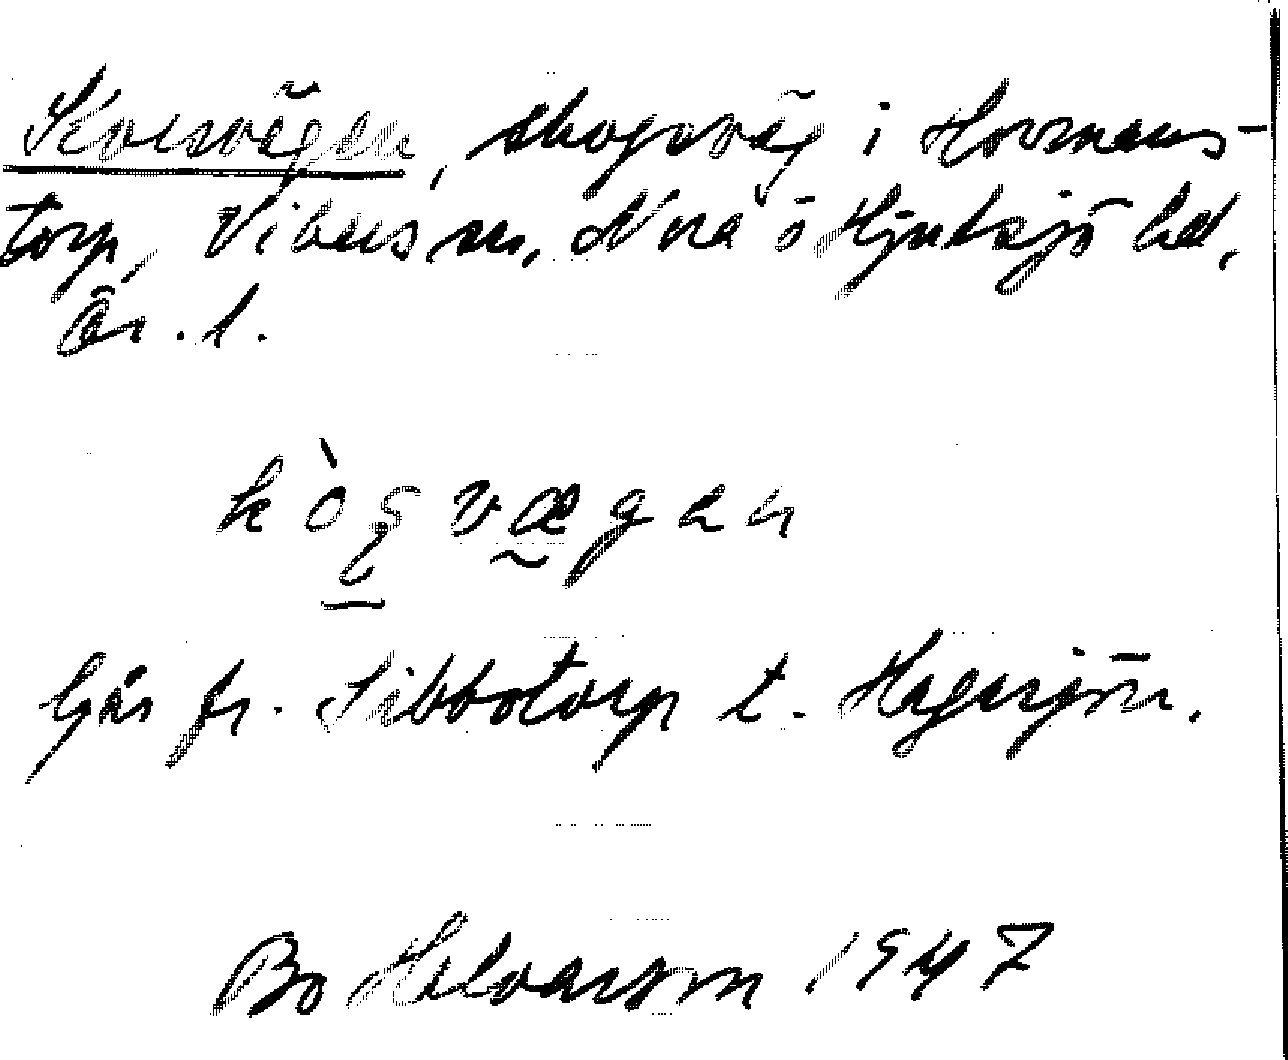 Korsvägen, skogsväg i Hovmans-
torp, Vibers sn, Nora o Hjulsjö hd,
Ör. l.
kòs̱vægen
Går fr. Sibbotorp t. Hagersjön.
Bo Halvarson 1947